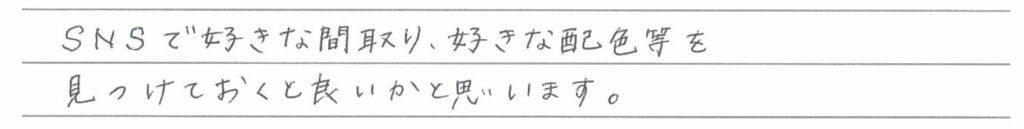 SNSで好きな間取り、好きな配色等を
見つけておくと良いかと思います。